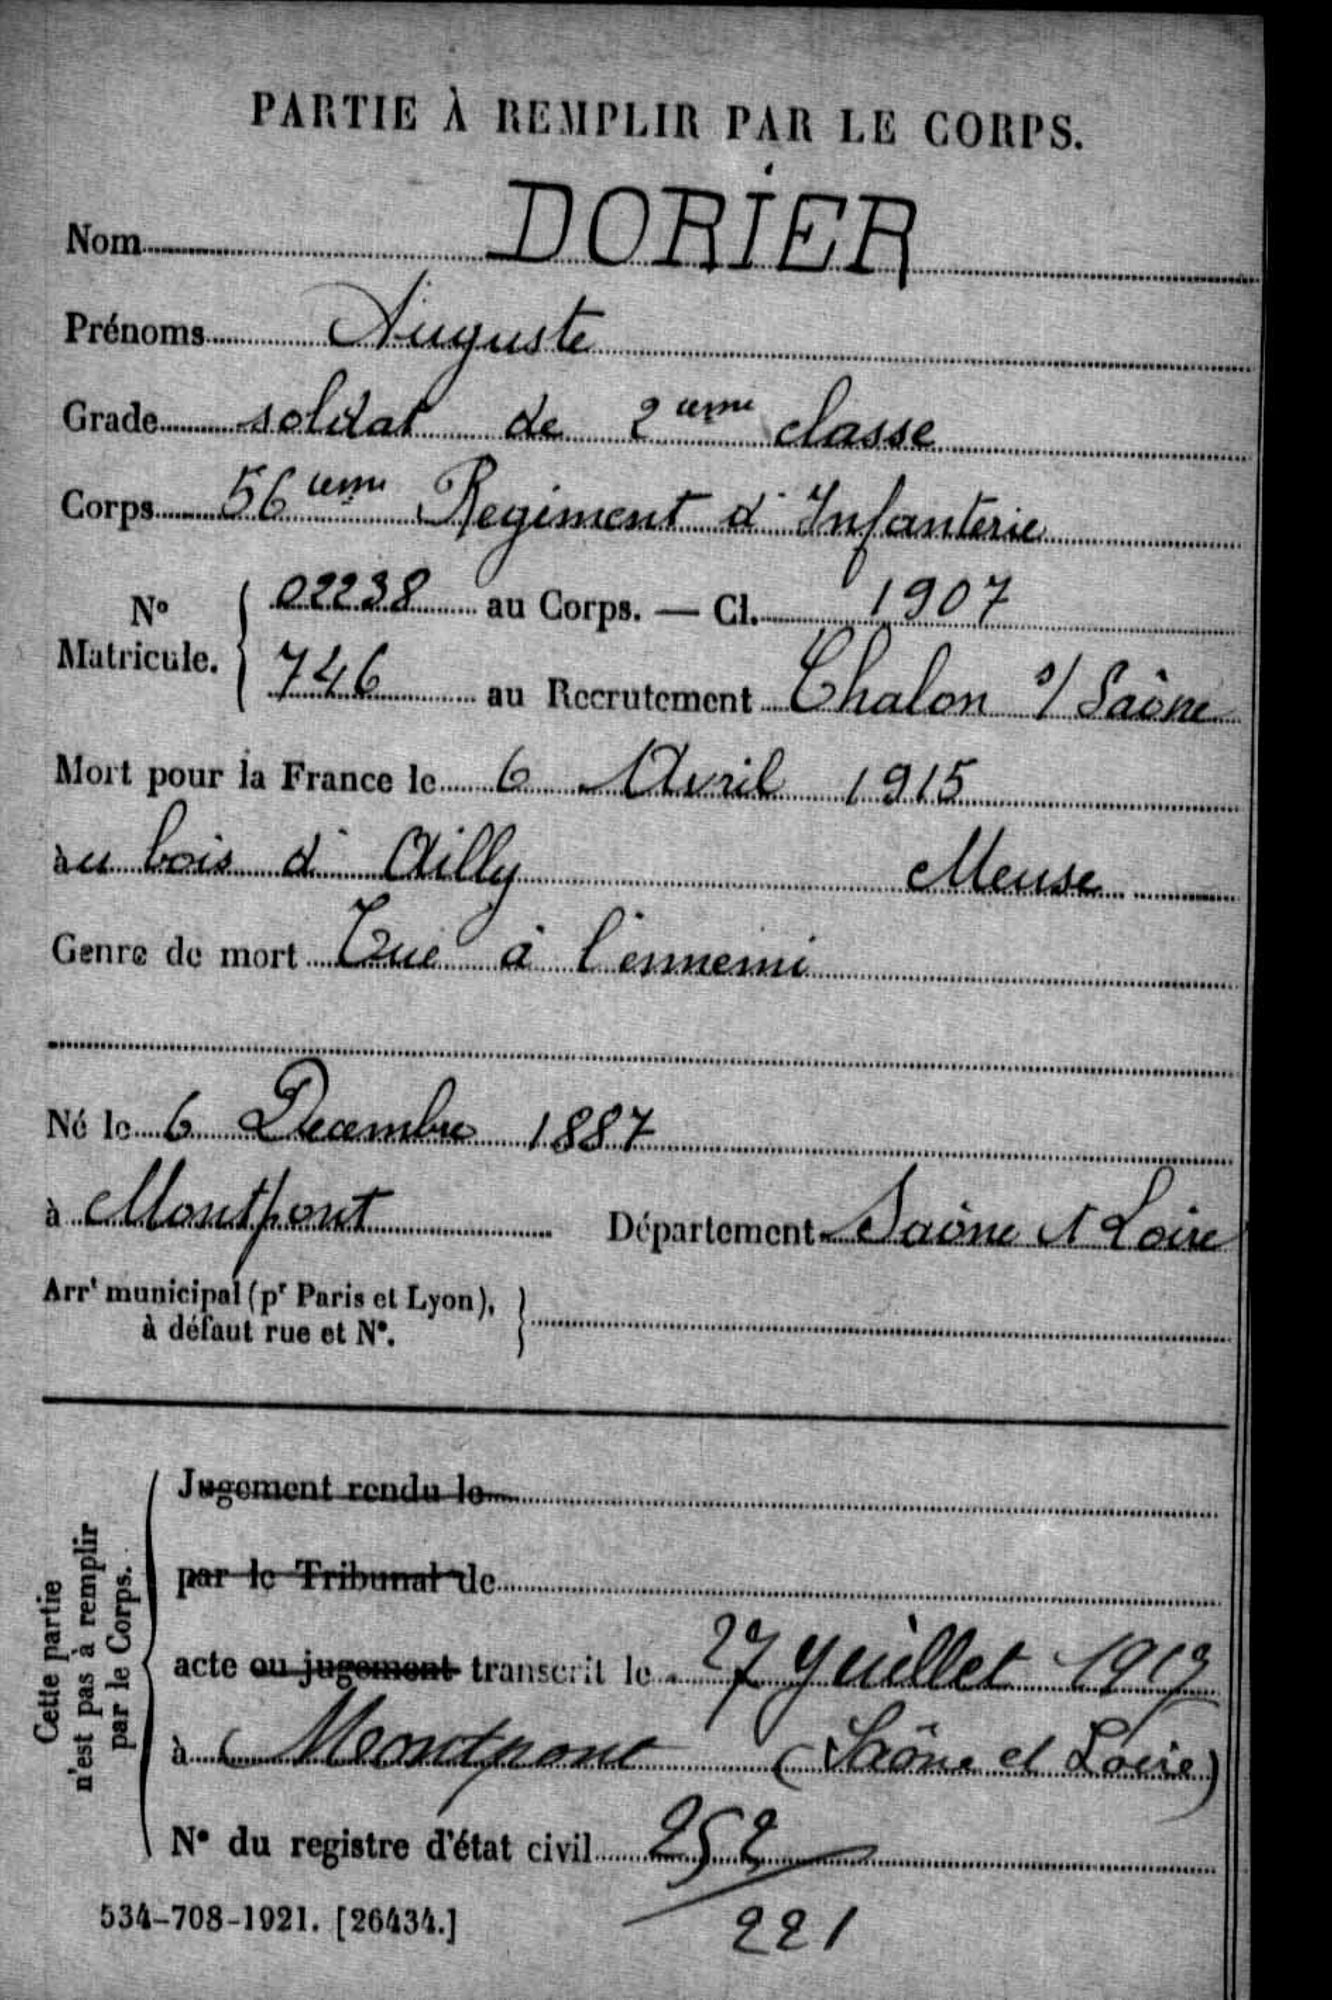 PARTIE À REMPLIR PAR LE CORPS.
Nom DORIER
Prénoms Auguste
Grade soldat de 2eme classe
Corps 56eme Regiment d'Infanterie
No Matricule. { 02238 au Corps. — Cl. 1907
746 au Recrutement Chalon s/ Saône
Mort pour la France le 6 Avril 1915
au bois d'Ailly Meuse
Genre de mort Tué à l'ennemi
Né le 6 Decembre 1887
à Montpont Département Saône et Loire
Arrt municipal (pr Paris et Lyon), à défaut rue et No. }
Cette partie n'est pas à remplir par le Corps.
Jugement rendu le
par le Tribunal de
acte ou jugement transcrit le 27 Juillet 1919
à Montpont (Saône et Loire)
No du registre d'état civil 252
221
534-708-1921. [26434.]